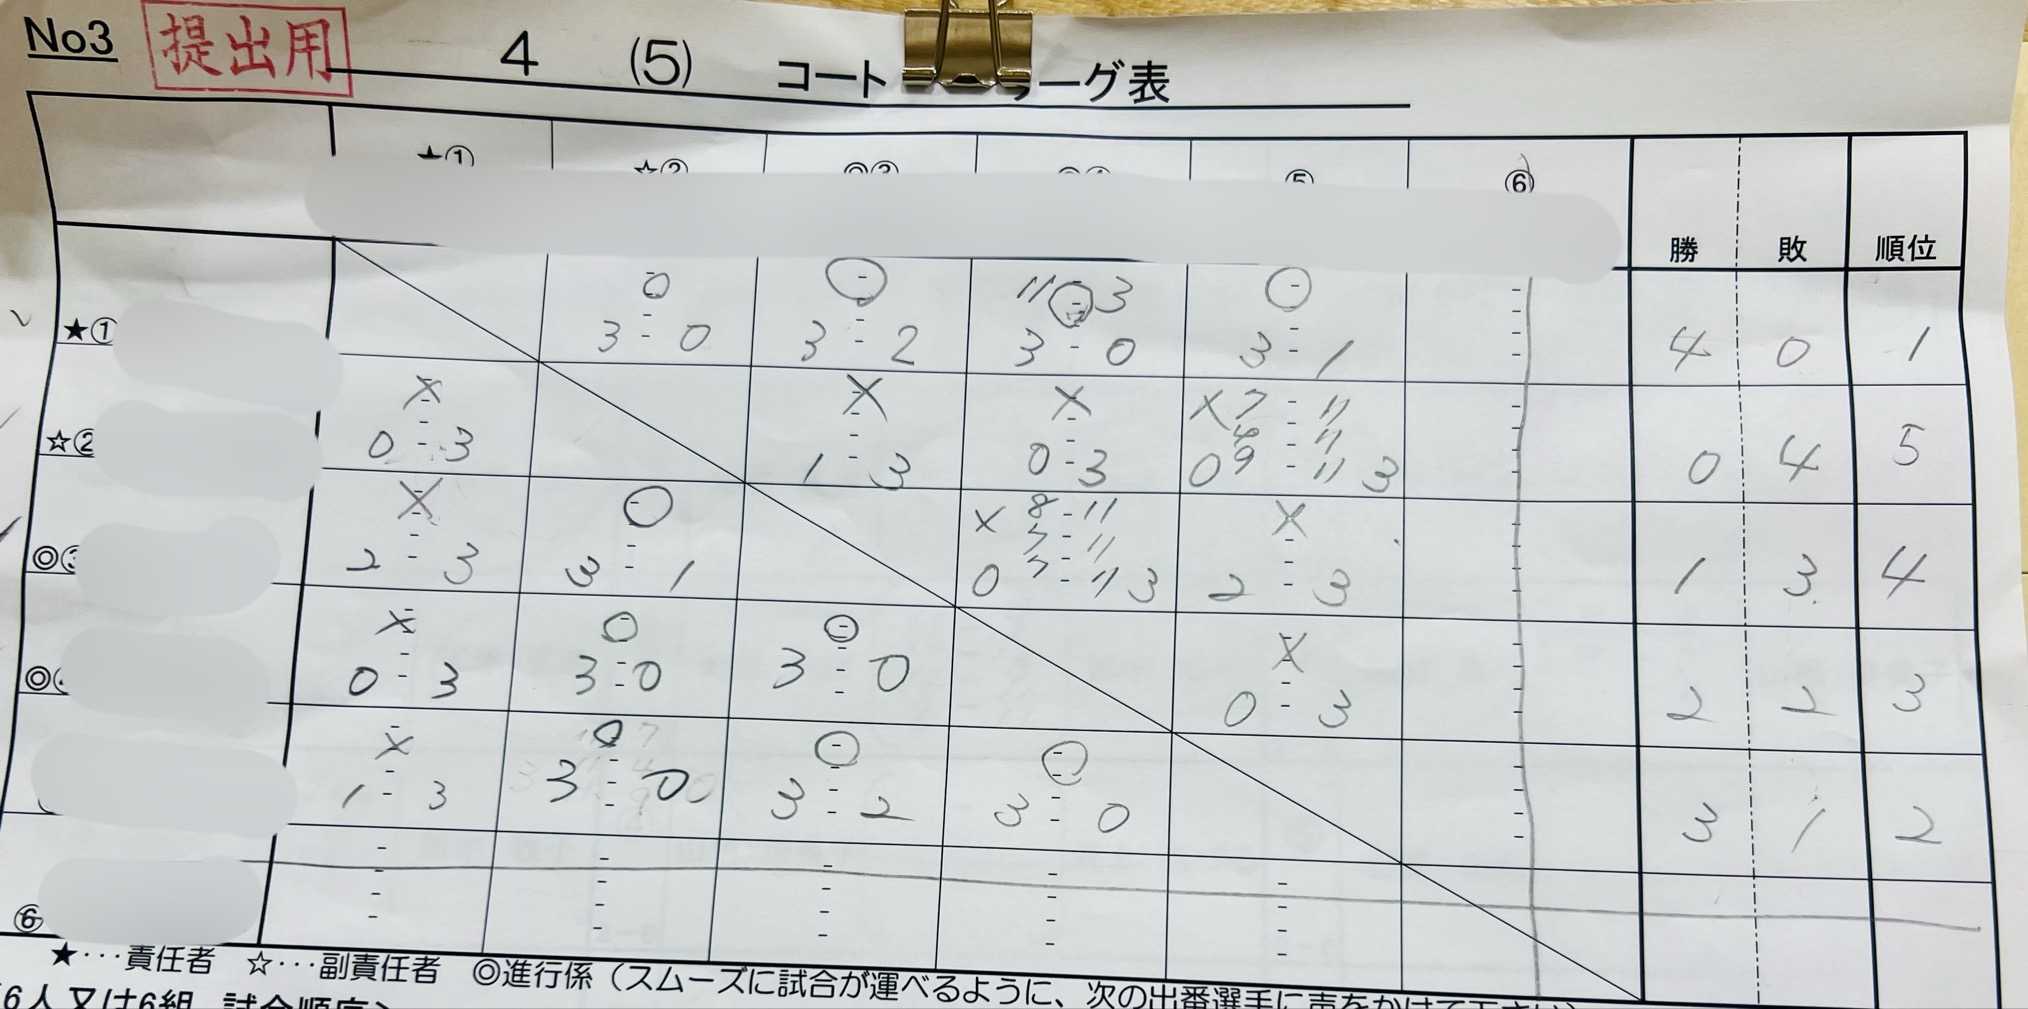 No3 提出用 4 (5) コート ーグ表
★① ☆② ◎③ ⑤ ⑥ 勝 敗 順位
★① 0 3-0 3-2 11 3 3-0 3-1 4 0 1
☆② × 0-3 × 1-3 × 0-3 × 7-11 4-11 9-11 0 3 0 4 5
◎③ × 2-3 3-1 × 8-11 7-11 7-11 0 3 × 2-3 1 3 4
◎ × 0-3 3-0 3-0 × 0-3 2 2 3
× 1-3 3-0 3-2 3-0 3 1 2
⑥
★･･･責任者 ☆･･･副責任者 ◎進行係（スムーズに試合が運べるように、次の出番選手に声をかけて下さい）
6人又は6組 試合順序＞